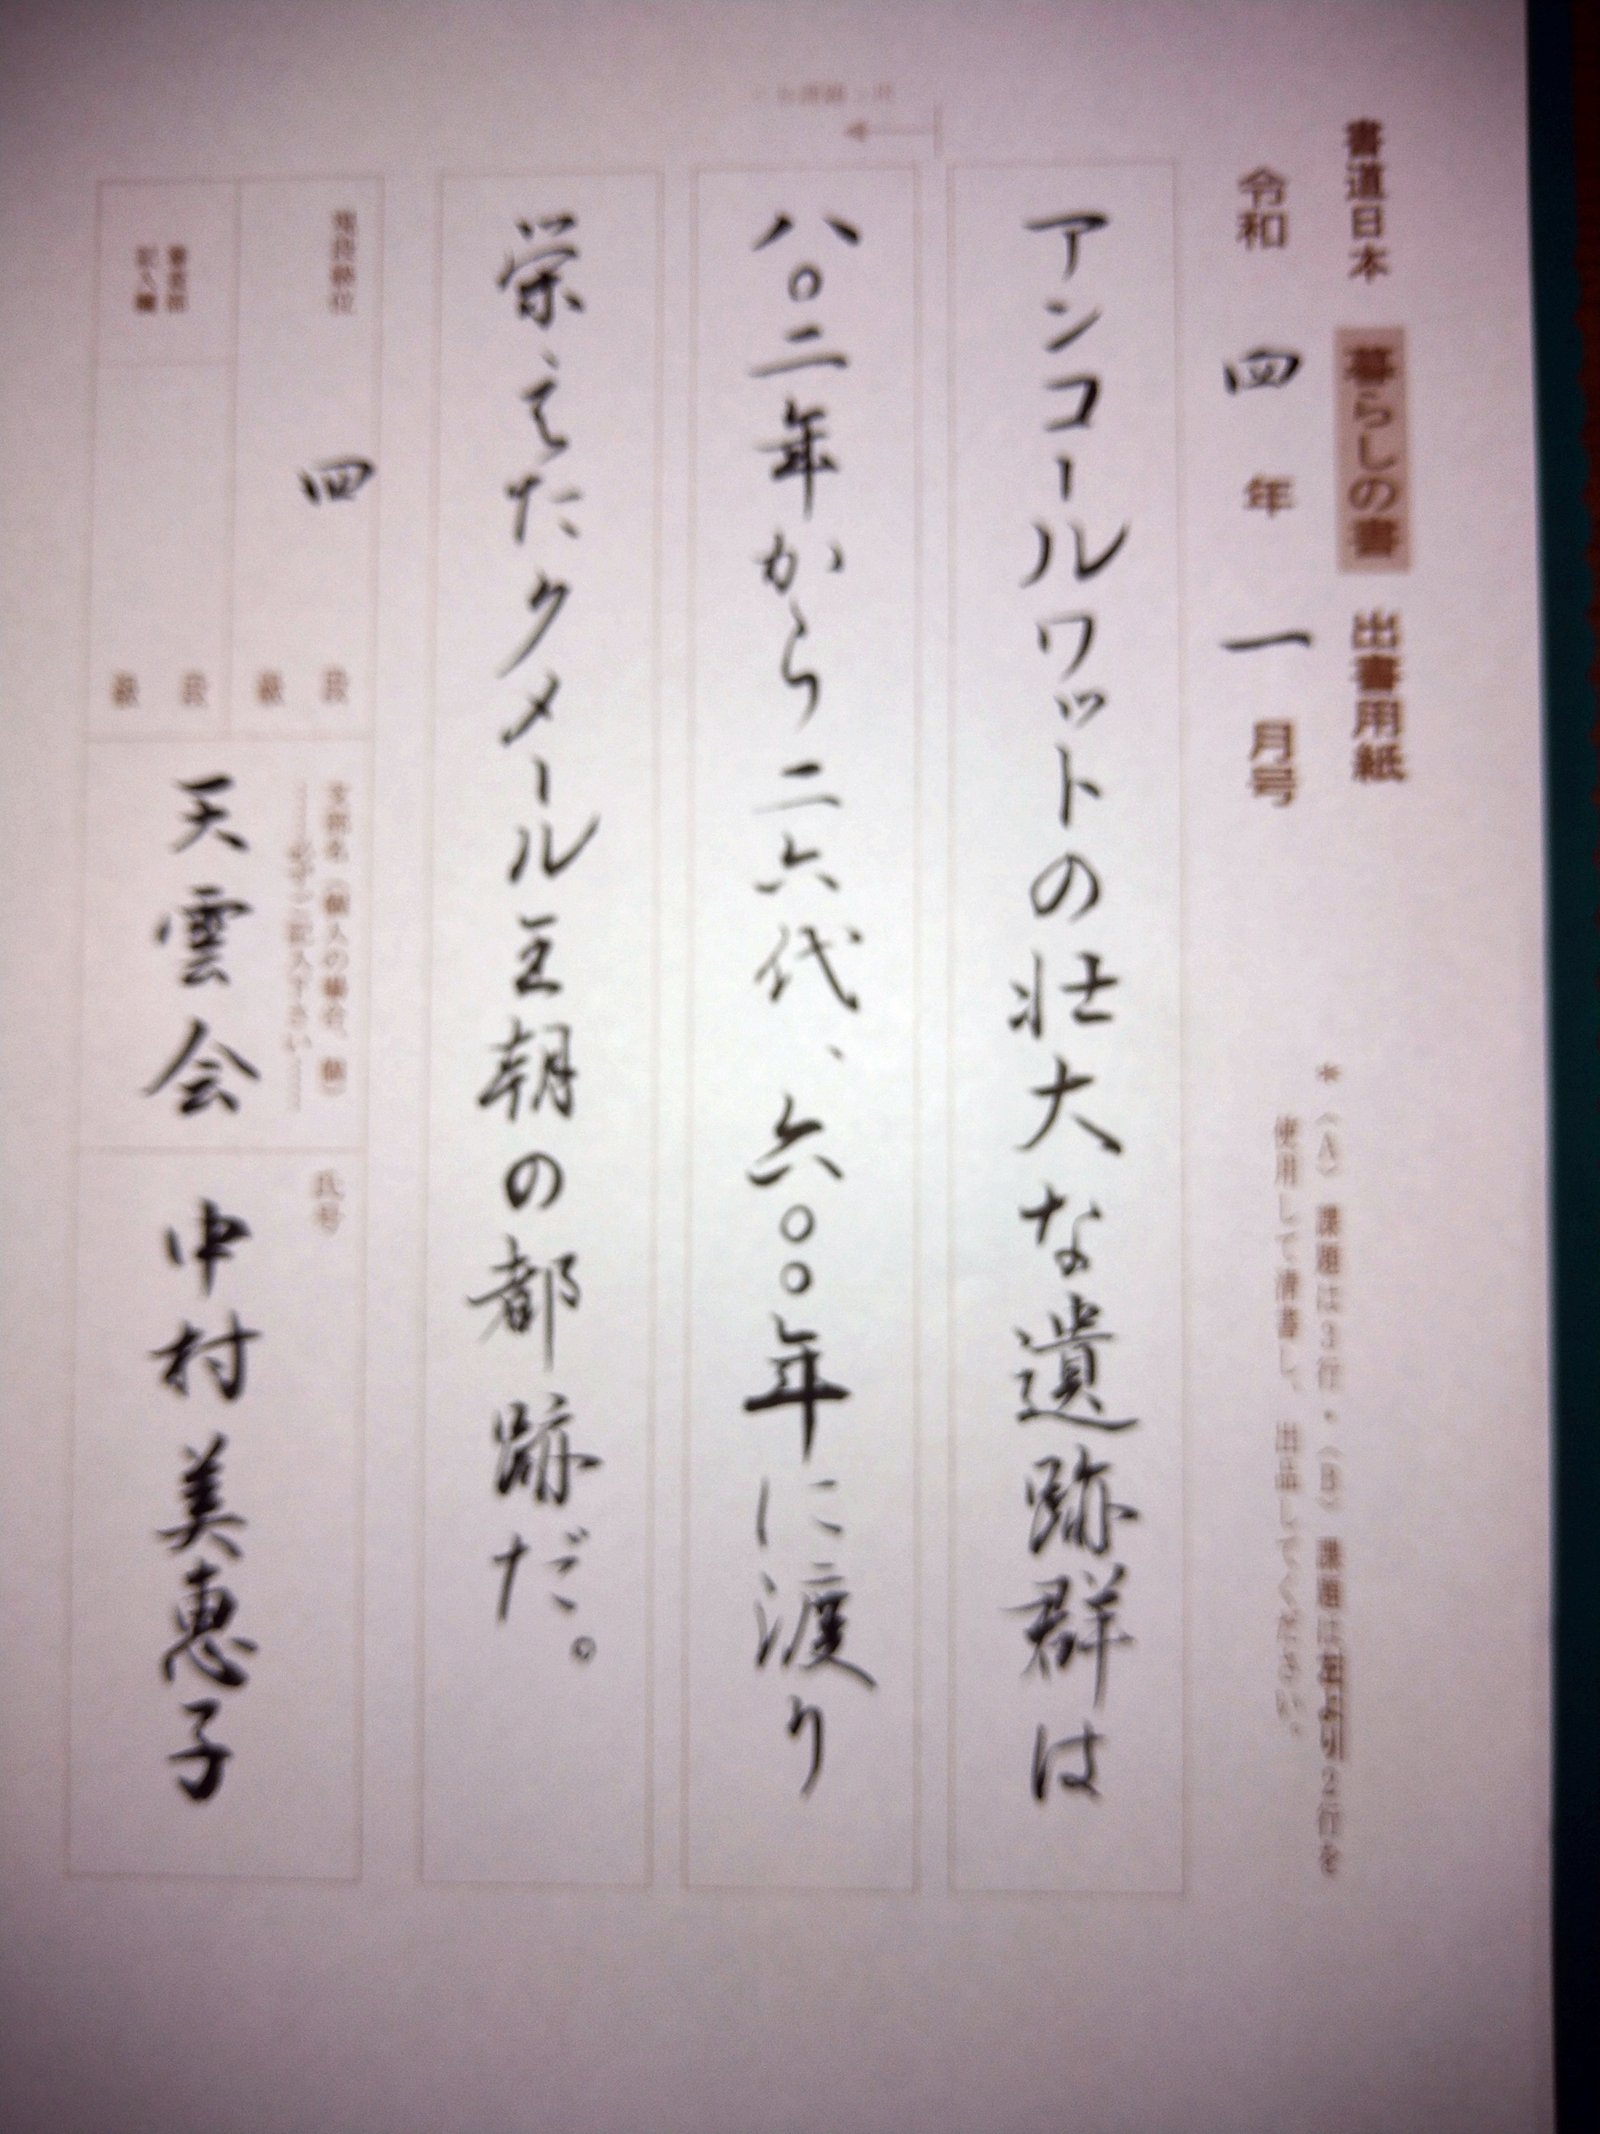 書道日本 暮らしの書 出書用紙
令和 四 年 一 月号
*〈A〉課題は3行・〈B〉課題は右より2行を
使用して清書し、出品してください。
アンコールワットの壮大な遺跡群は
八〇二年から二六代、六〇〇年に渡り
栄えたクメール王朝の都跡だ。
四 段 級
審査部
記入欄
段 級
支部名（個人の場合、個）
……必ずご記入下さい……
天雲会
氏号
中村美恵子